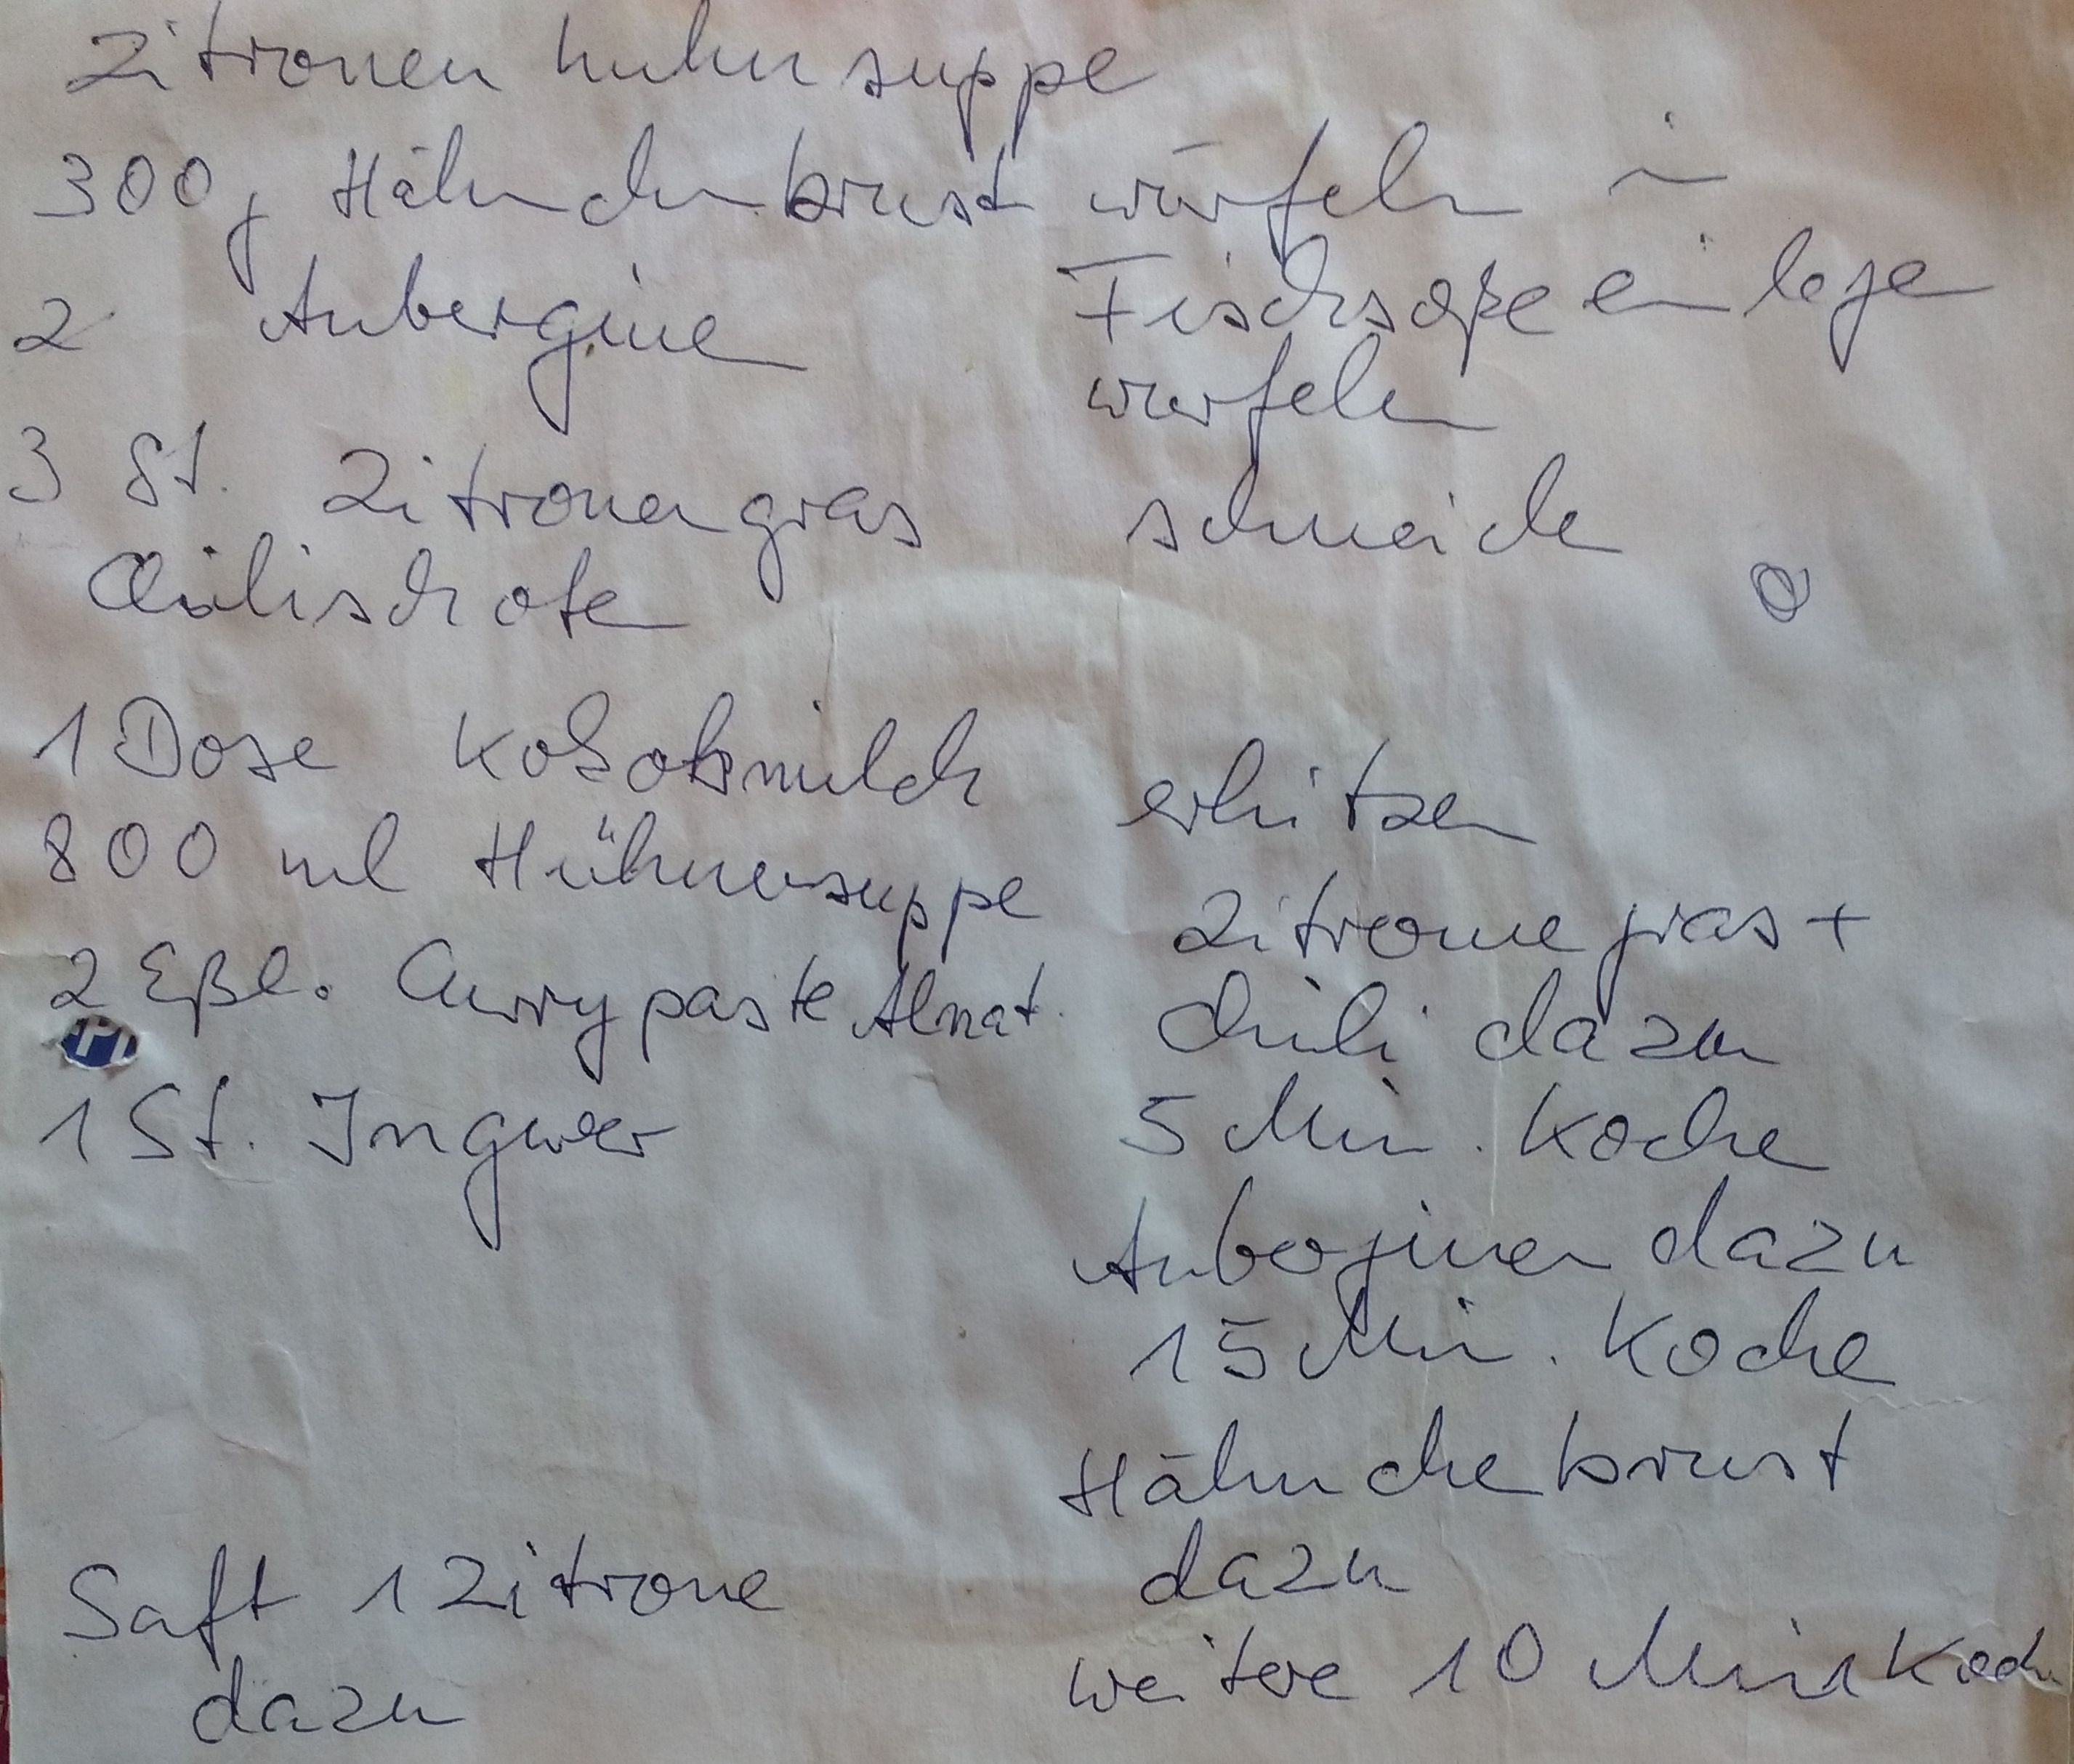 Zitronenhuhnsuppe
300g Hähnchenbrust würfeln in
Fischsoße einlegen
2 Aubergine
würfeln
3 St. Zitronengras schneiden
Chilischote
1 Dose Kokosmilch erhitzen
800 ml Hühnersuppe
Zitronegras +
2 Eßl. Currypaste Alnat.
Chili dazu
1 St. Ingwer
5 Min. Koche
Auberginen dazu
15 Min. Koche
Hähnchebrust
dazu
Saft 1 Zitrone
dazu
weitere 10 Min Koch